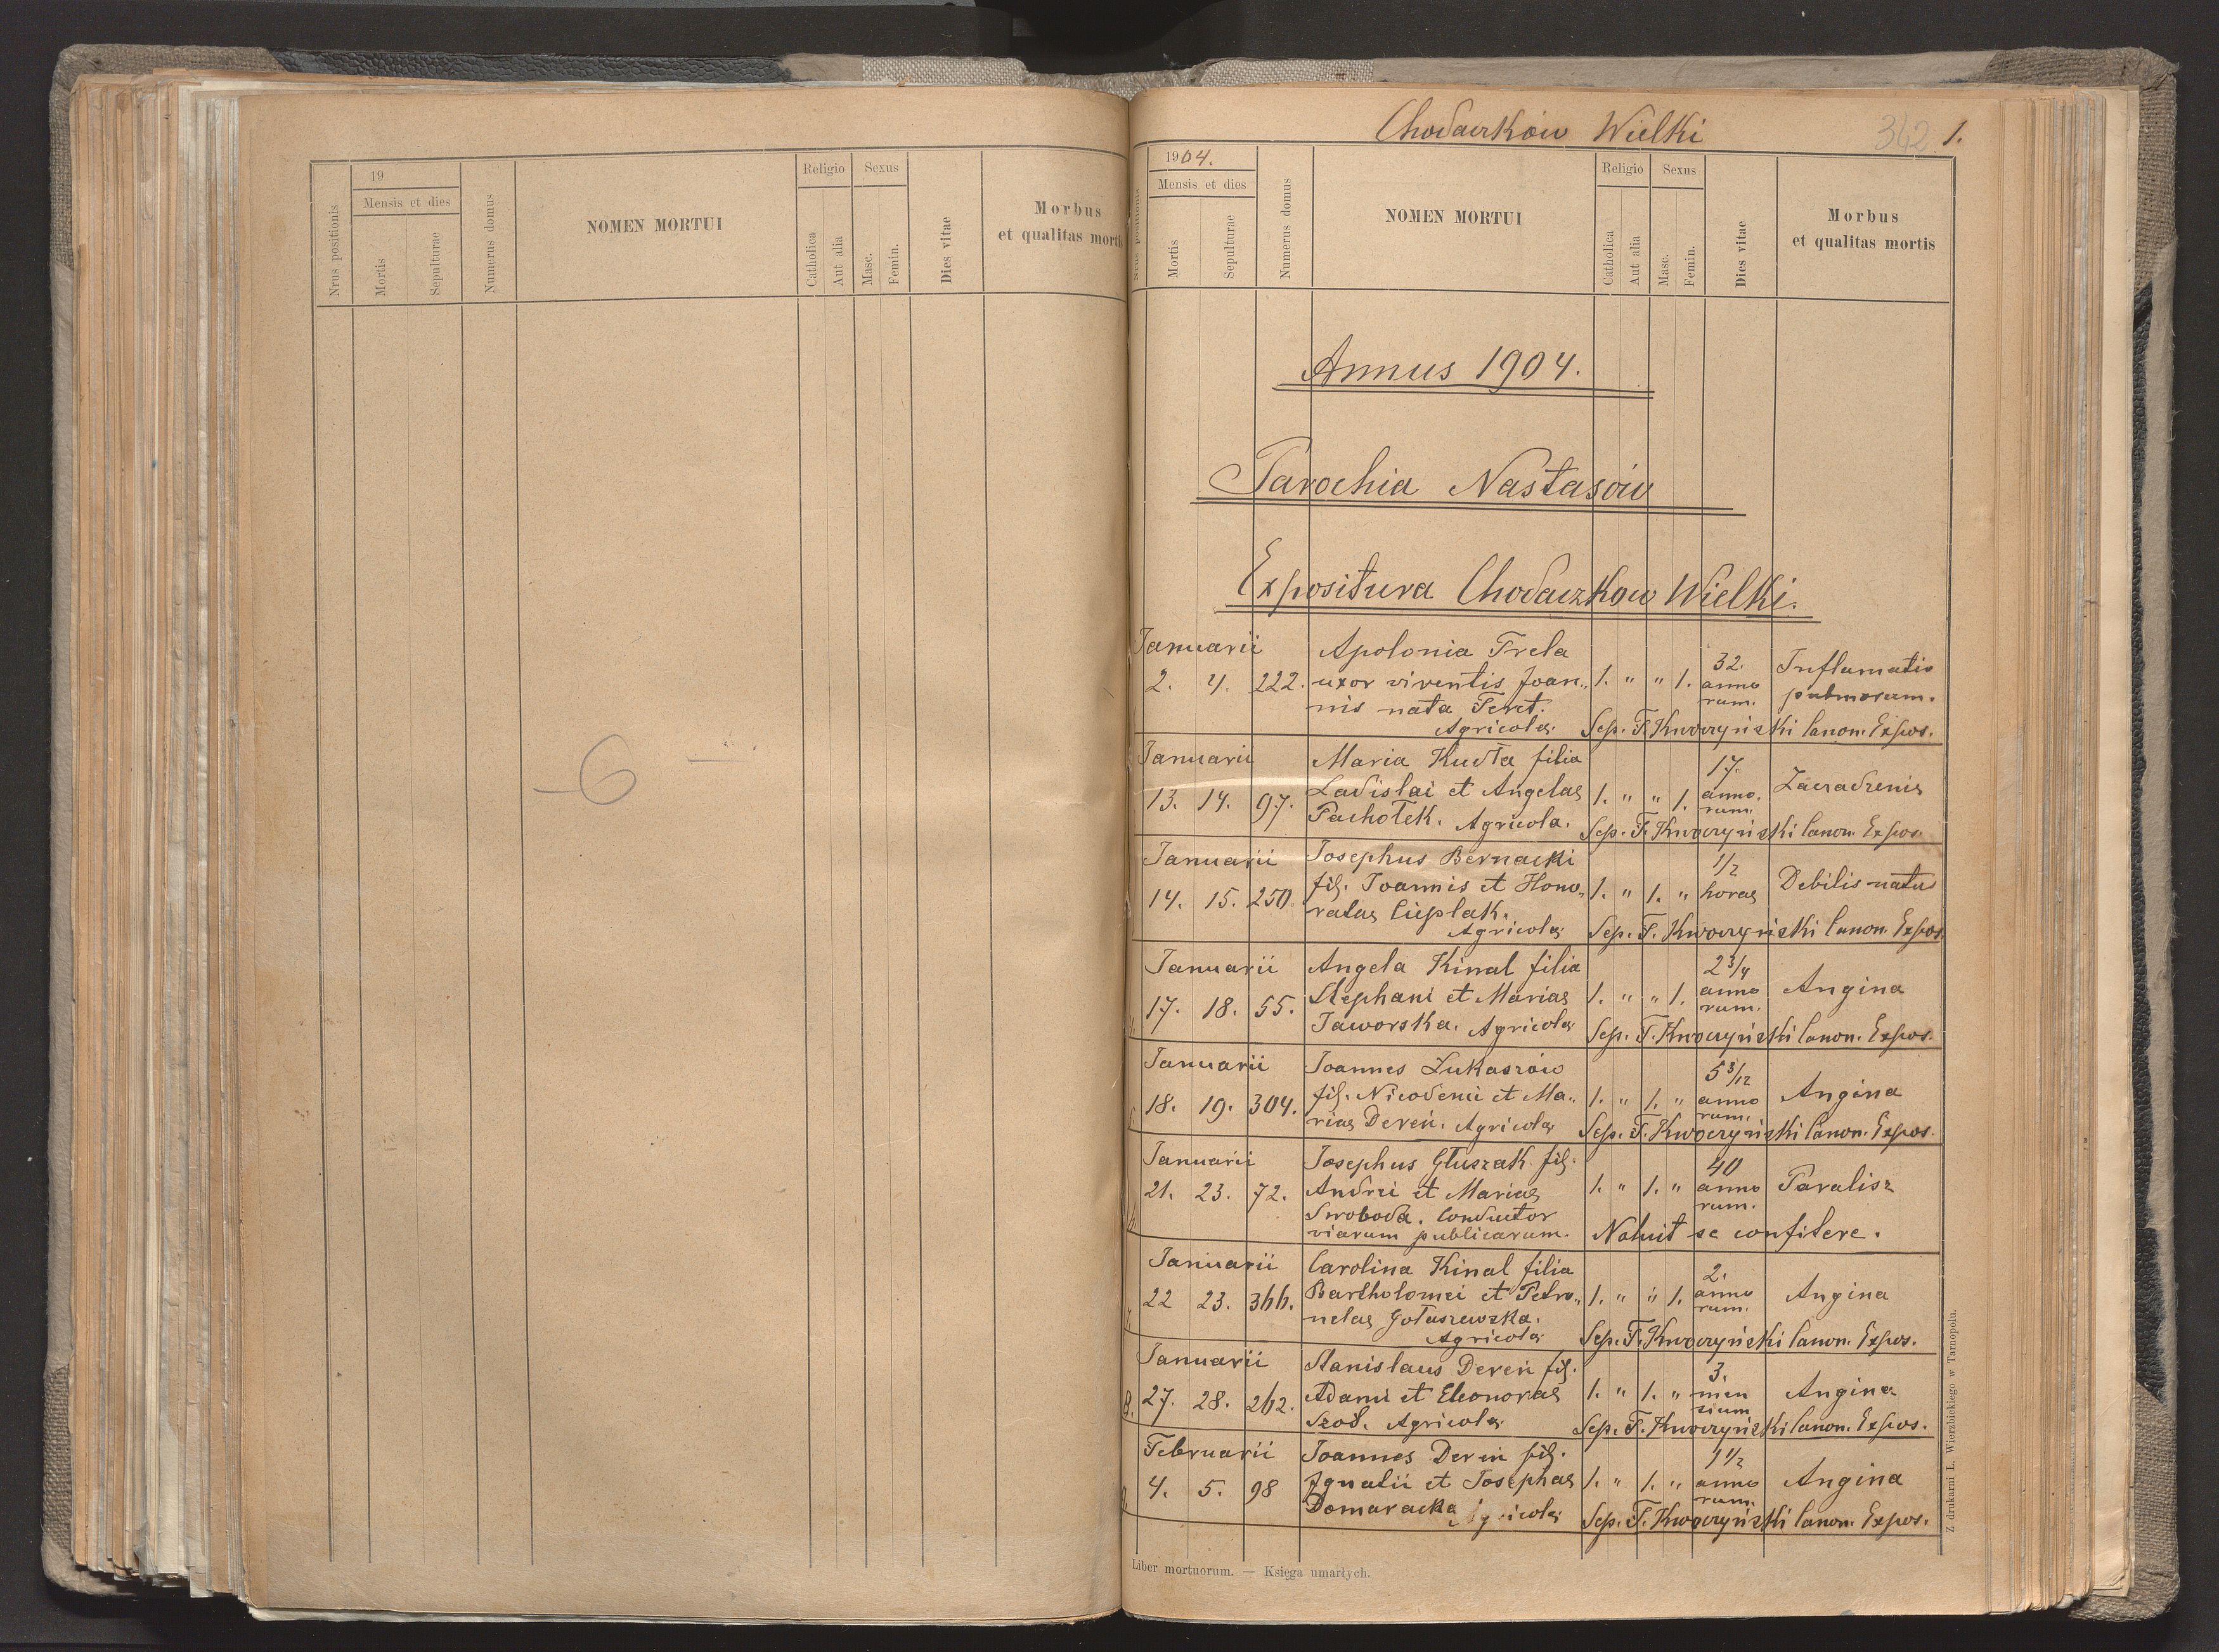 19
Mensis et dies
Nrus positionis
Mortis
Sepulturae
Numerus domus
NOMEN MORTUI
Religio
Catholica
Aut alia
Sexus
Masc.
Femin.
Dies vitae
Morbus
et qualitas mortis
6
Chodaczków Wielki
342 1.
1904.
Mensis et dies
Nrus positionis
Mortis
Sepulturae
Numerus domus
NOMEN MORTUI
Religio
Catholica
Aut alia
Sexus
Masc.
Femin.
Dies vitae
Morbus
et qualitas mortis
Annus 1904.
Parochia Nastasów
Expositura Chodaczkow Wielki.
Januarii Apolonia Frela
2. 4. 222. uxor viventis Joan„ 1. " " 1. 32. anno rum. Inflamatio
nis nata Feret. pulmorum.
Agricolae Sep. F. Kwoczyński Canon. Expos.
Januarii Maria Kudła filia
13. 14. 97. Ladislai et Angelae 1. " " 1. 17. anno. rum. Zaczadzenie
Pachołek. Agricola. Sep. F. Kwoczyński Canon. Expos.
Januarii Josephus Bernacki
14. 15. 250. fil. Joannis et Hono„ 1. " 1. " 1/2 horae Debilis natus
ratae Cieplak.
Agricolae Sep. F. Kwoczyński Canon. Expos.
Januarii Angela Kinal filia
17. 18. 55. Stephani et Mariae 1. " " 1. 2 3/4 anno rum. Angina
Jaworska. Agricolae Sep. F. Kwoczyński Canon. Expos.
Januarii Joannes Łukaszów
18. 19. 304. fil. Nicodemi et Ma„ 1. " 1. " 5 3/12 anno rum. Angina
riae Dereń. Agricolae Sep. F. Kwoczyński Canon. Expos.
Januarii Josephus Głuszak fil.
21. 23. 72. Andrei et Mariae 1. " 1. " 40 anno rum. Paralisz
Swoboda. Conductor
viarum publicarum. Noluit se confitere.
Januarii Carolina Kinal filia
22 23. 366. Bartholomei et Petro„ 1. " " 1. 2. anno rum. Angina
nelae Gołaszewska.
Agricolae Sep. F. Kwoczyński Canon. Expos.
Januarii Stanislaus Dereń fil.
8. 27. 28. 262. Adami et Eleonorae 1. " 1. " 3. men sium Angina
Szod. Agricolae Sep. F. Kwoczyński Canon. Expos.
Februarii Joannes Dereń fil.
4. 5. 98 Ignatii et Josephae 1. " 1. " 1 1/2 anno rum. Angina
Domaracka Agricolae Sep. F. Kwoczyński Canon. Expos.
Liber mortuorum. — Księga umarłych.
Z drukarni L. Wierzbickiego w Tarnopolu.